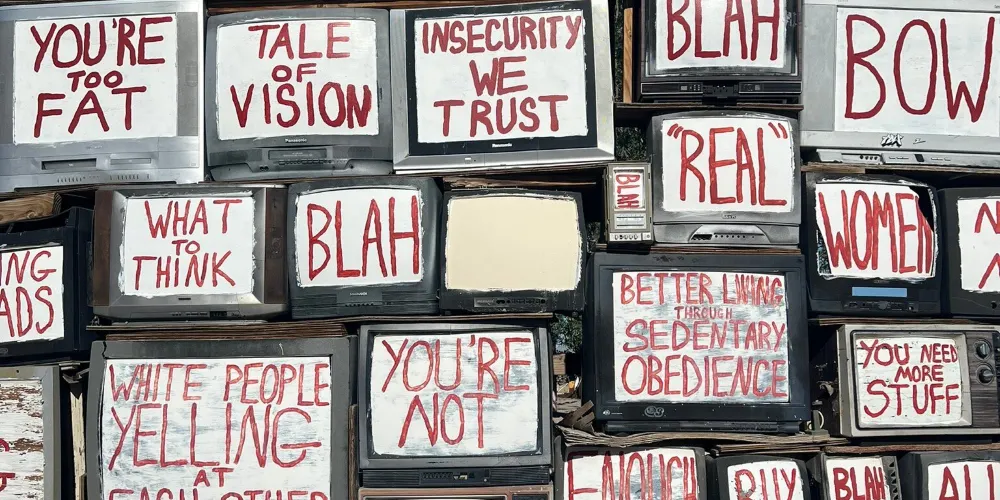 YOU'RE
TOO
FAT
TALE
OF
VISION
Panasonic
INSECURITY
WE
TRUST
Panasonic
BLAH
BOW
"REAL"
BLAH
ING
ADS
WHAT
TO
THINK
BLAH
WOMEN
BETTER LIVING
THROUGH
SEDENTARY
OBEDIENCE
YOU NEED
MORE
STUFF
WHITE PEOPLE
YELLING
AT
EACH OTHER
YOU'RE
NOT
ENOUGH
BUY
BLAH
ALL